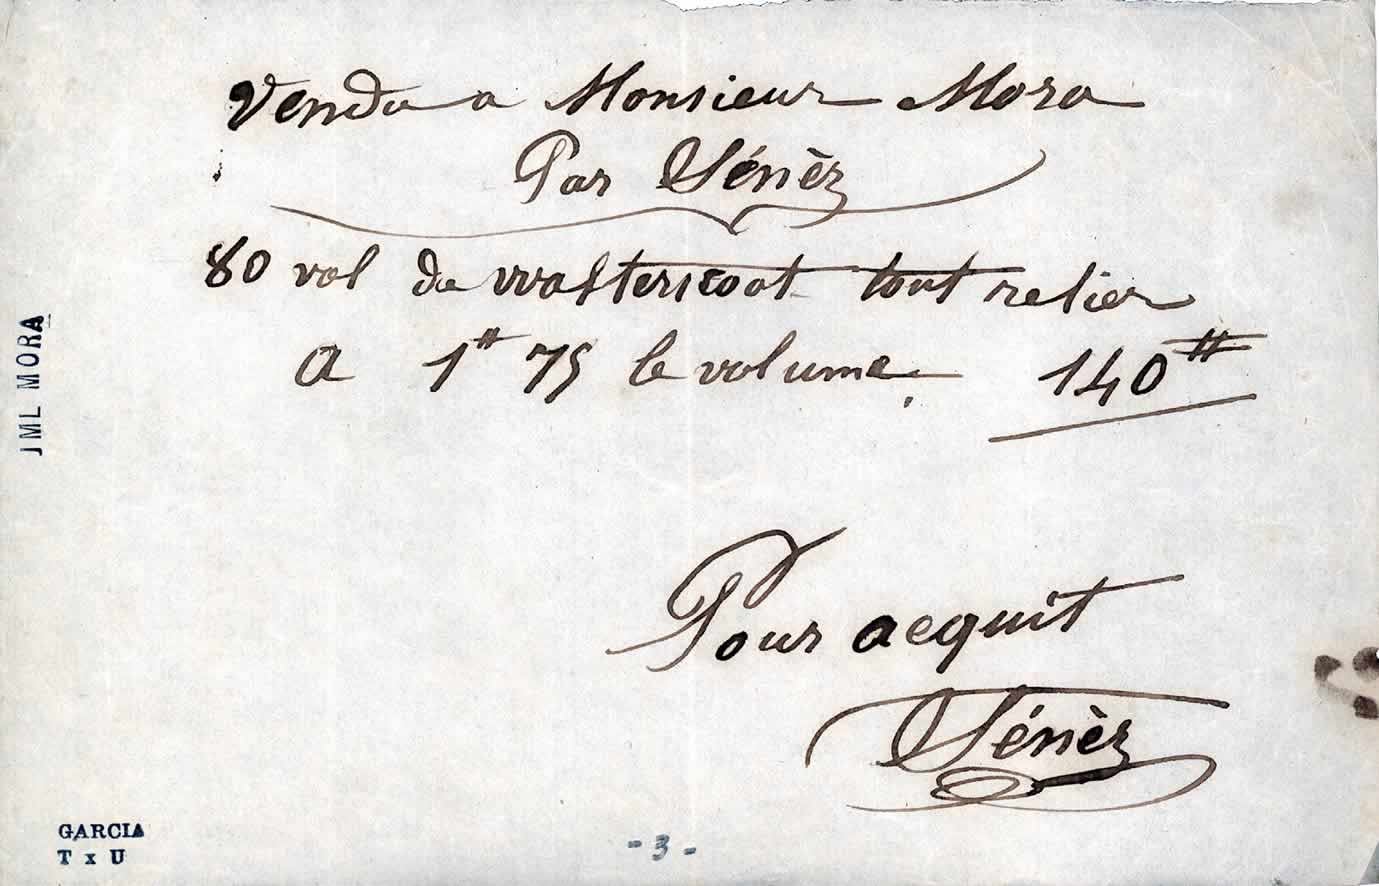 Vendu a Monsieur Mora
Par Sénèz
80 vol de walterscoot tout relier
A 1# 75 le volume. 140#
Pour acquit
Sénèz
JML MORA
GARCIA
T x U
- 3 -